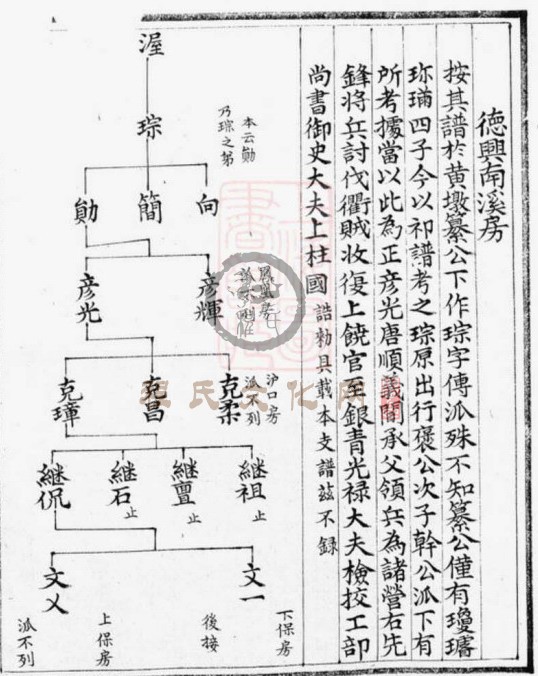 德興南溪房
按其譜於黃墩纂公下作琮字傳派殊不知纂公僅有瓊璿
珎瑀四子今以祁譜考之琮原出行褒公次子幹公派下有
所考據當以此為正彦光唐順義間承父領兵為諸營右先
鋒將兵討伐衢賊收復上饒官至銀青光禄大夫檢挍工部
尚書御史大夫上柱國誥勅具載本支譜茲不録
渥
琮
本云勛
乃琮之弟
向
簡
勛
彦輝
鳳凰房
彦光
克柔
沪口房
派不列
克昌
克璋
継祖
止
継亶
止
継石
止
継侃
文一
下保房
後接
文乂
上保房
派不列
程氏文化网